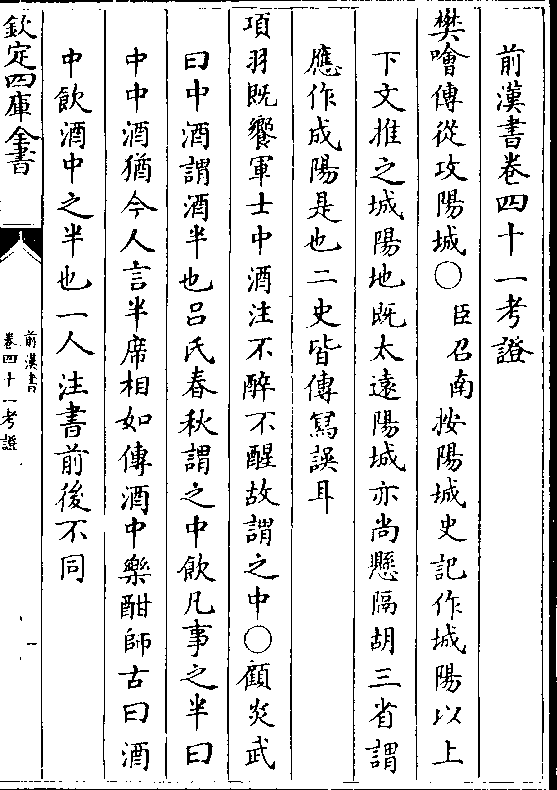 前漢書卷四十一考證
樊噲傳從攻陽城○臣召南按陽城史記作城陽以上
下文推之城陽地既太遠陽城亦尚懸隔胡三省謂
應作成陽是也二史皆傳寫誤耳
項羽既饗軍士中酒注不醉不醒故謂之中○顧炎武
曰中酒謂酒半也呂氏春秋謂之中飲凡事之半曰
中中酒猶今人言半席相如傳酒中樂酣師古曰酒
中飲酒中之半也一人注書前後不同
欽定四庫全書
前漢書
卷四十一考證
一